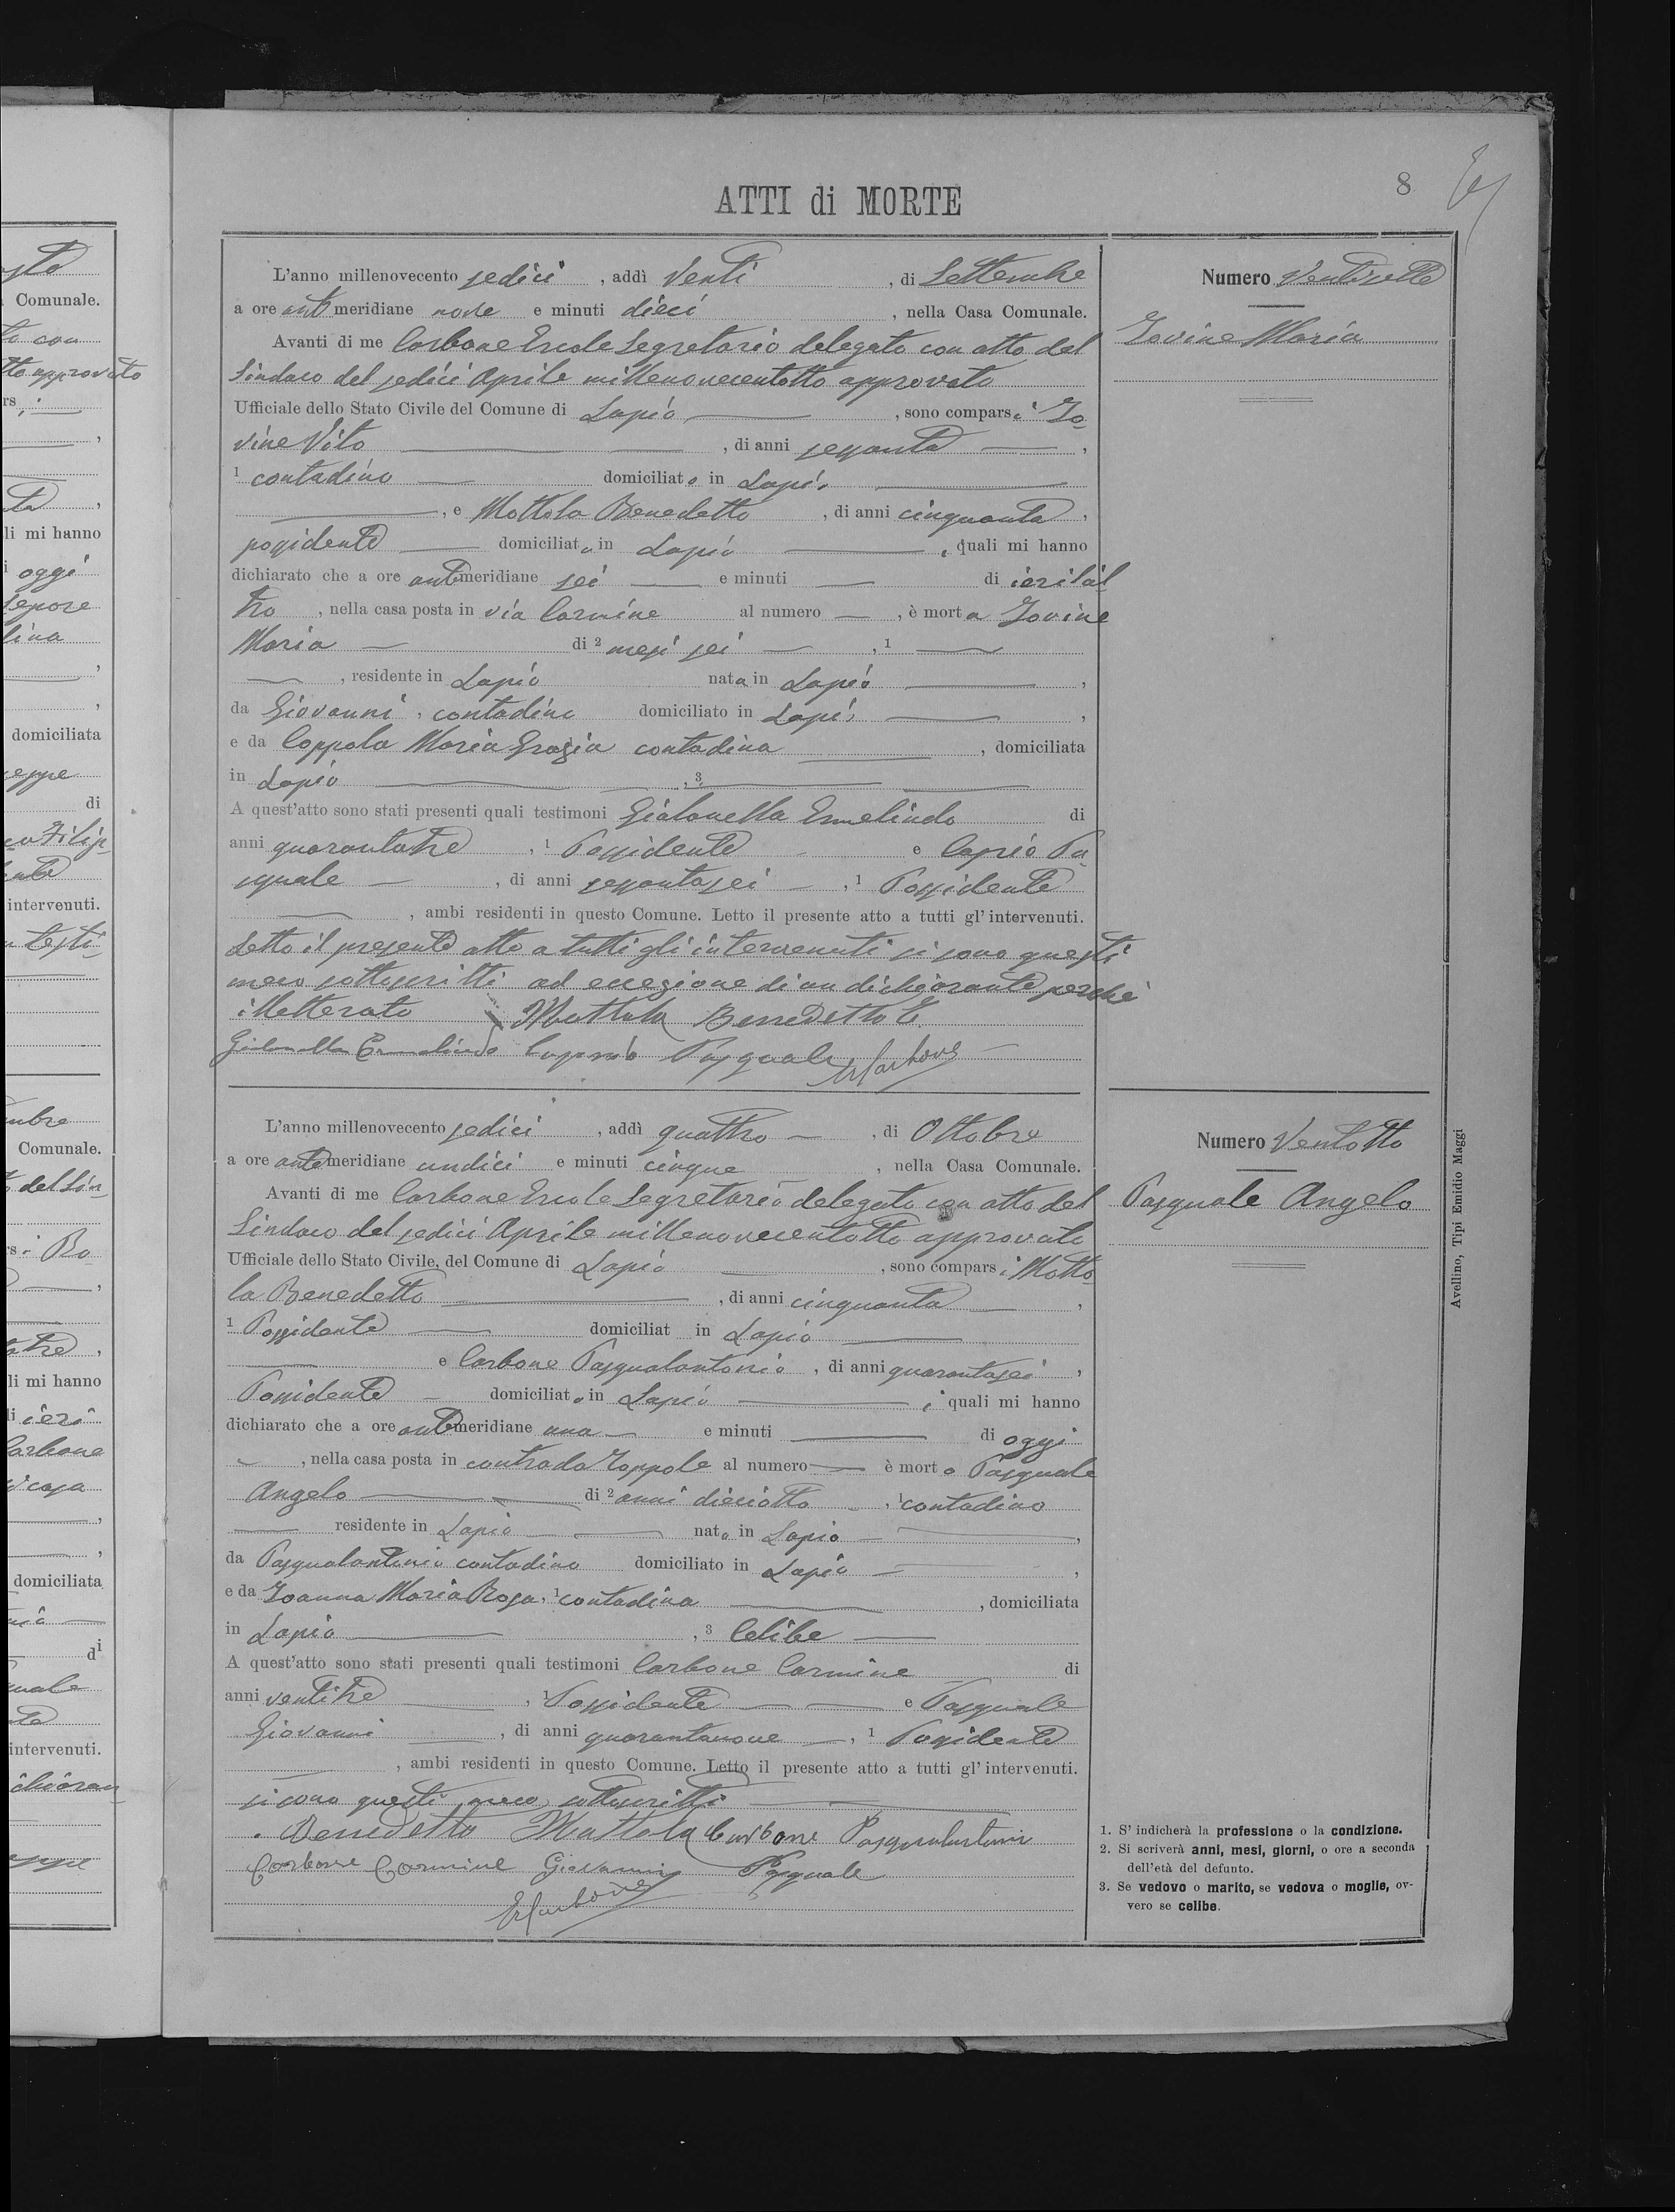 8
ATTI di MORTE
Numero Ventisette
Iovine Maria
L'anno millenovecento sedici, addì Venti, di Settembre
a ore antimeridiane nove e minuti dieci, nella Casa Comunale.
Avanti di me Carbone Ercole Segretario delegato con atto del
Sindaco del sedici Aprile millenovecentotto approvato
Ufficiale dello Stato Civile del Comune di Lapio, sono comparsi Io-
vine Vito, di anni sessanta,
1 contadino domiciliato in Lapio
, e Mottola Benedetto, di anni cinquanta,
possidente domiciliato in Lapio, i quali mi hanno
dichiarato che a ore antimeridiane sei e minuti — di ierilal
tro, nella casa posta in via Carmine al numero —, è morta Iovine
Maria — di 2 mesi sei —, 1 —
—, residente in Lapio nata in Lapio,
da Giovanni, contadino domiciliato in Lapio,
e da Coppola Maria Grazia contadina, domiciliata
in Lapio, 3
A quest'atto sono stati presenti quali testimoni Gialonella Ermelindo di
anni quarantatre, 1 Possidente e Caprio Pa-
squale, di anni sessantasei, 1 Possidente
, ambi residenti in questo Comune. Letto il presente atto a tutti gl'intervenuti.
Letto il presente atto a tutti gli intervenuti si sono questi
meco sottoscritti ad eccezione di un dichiarante perchè
illetterato Mottola Benedetto
Ermelindo Pasquale ECarbone
Numero Ventotto
Pasquale Angelo
L'anno millenovecento sedici, addì quattro —, di Ottobre
a ore antimeridiane undici e minuti cinque, nella Casa Comunale.
Avanti di me Carbone Ercole Segretario delegato con atto del
Sindaco del sedici Aprile millenovecentotto approvato
Ufficiale dello Stato Civile, del Comune di Lapio, sono comparsi Motto-
la Benedetto, di anni cinquanta,
1 Possidente domiciliat in Lapio
e Carbone Pasqualantonio, di anni quarantasei,
Possidente domiciliato in Lapio i quali mi hanno
dichiarato che a ore antimeridiane una e minuti — di oggi
, nella casa posta in contrada Zoppole al numero — è morto Pasquale
Angelo — di 2 anni dieciotto, 1 contadino
residente in Lapio nato in Lapio,
da Pasqualantonio contadino domiciliato in Lapio,
e da Ioanna Maria Rosa, 1 contadina, domiciliata
in Lapio, 3 Celibe
A quest'atto sono stati presenti quali testimoni Carbone Carmine di
anni ventitre, 1 Possidente e Pasquale
Giovanni, di anni quarantanove, 1 Possidente
, ambi residenti in questo Comune. Letto il presente atto a tutti gl'intervenuti.
si sono questi meco sottoscritti
Benedetto Mottola Carbone Pasqualantonio
Carbone Carmine Giovanni Pasquale
ECarbone
1. S'indicherà la professione o la condizione.
2. Si scriverà anni, mesi, giorni, o ore a seconda
dell'età del defunto.
3. Se vedovo o marito, se vedova o moglie, ov-
vero se celibe.
Avellino, Tipi Emidio Maggi